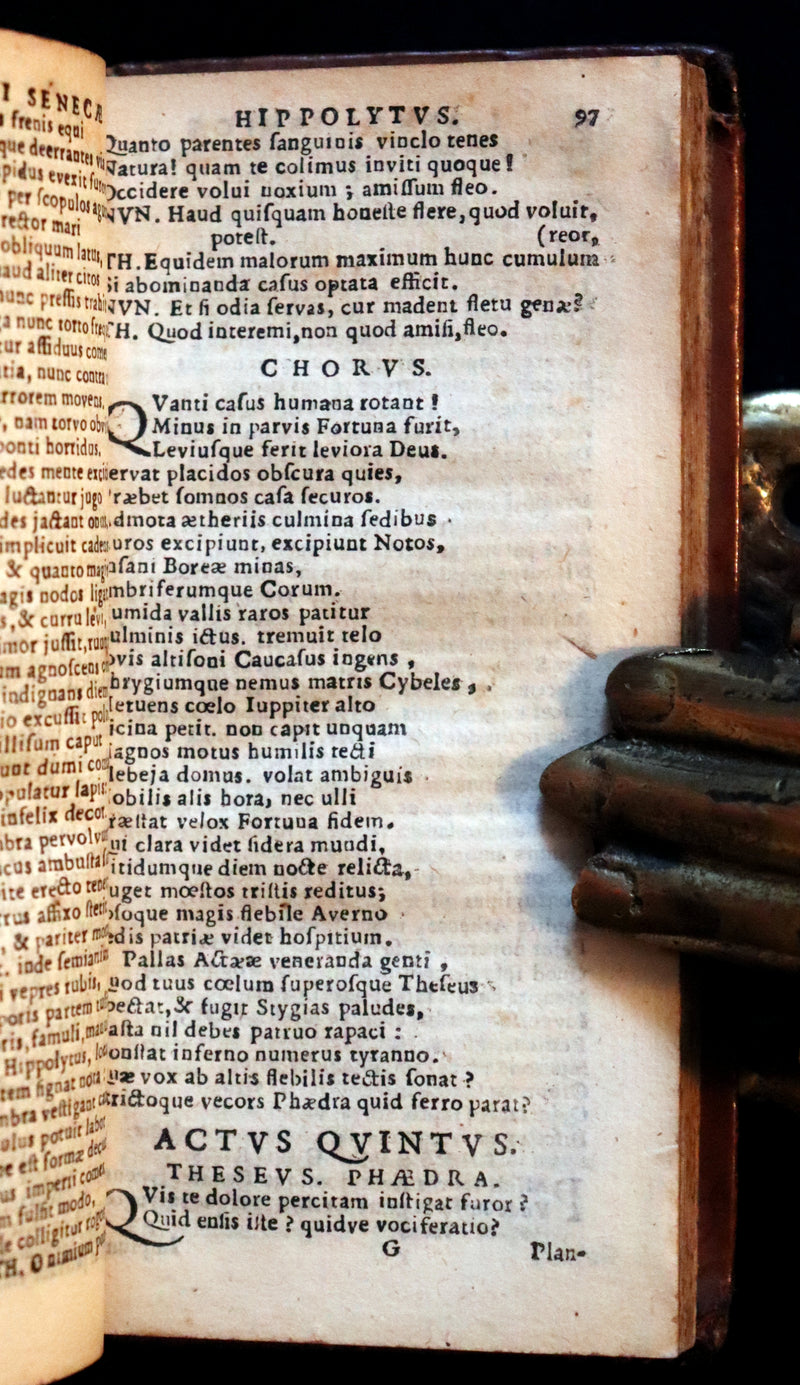 I SENECA
frenis equi
que deerrantei
pidus evexit
per ſcopulos
rector mari
obliquum latus,
aud aliter citos
nunc preſſis
nunc torto
ur aſſiduus
nunc contra
rrorem
nam torvo
ponti horridus,
mente
luctantur jugo
des jactant
implicuit
& quanto
agis nodos
& curru
juſſit,
um agnoſcens
indignans
io excuſſit
illiſum caput
unt dumi
lapis
infelix decor
pervolvunt
ambuſta
erecto
affixo
& pariter
inde
vepres rubis,
partem
famuli,
Hippolytus,
ſignat nota
potuit
eſt formæ
imperii
modo,
colligitur
HIPPOLYTVS. 97
Quanto parentes ſanguinis vinclo tenes
Natura! quam te colimus inviti quoque!
Occidere volui noxium ; amiſſum fleo.
NVN. Haud quiſquam honeſte flere, quod voluit,
poteſt. (reor,
TH. Equidem malorum maximum hunc cumulum
Si abominanda caſus optata efficit.
NVN. Et ſi odia ſervas, cur madent fletu genæ?
TH. Quod interemi, non quod amiſi, fleo.
CHORVS.
QVanti caſus humana rotant!
Minus in parvis Fortuna furit,
Leviuſque ferit leviora Deus.
ervat placidos obſcura quies,
ræbet ſomnos caſa ſecuros.
dmota ætheriis culmina ſedibus
uros excipiunt, excipiunt Notos,
nſani Boreæ minas,
mbriferumque Corum.
umida vallis raros patitur
ulminis ictus. tremuit telo
ovis altiſoni Caucaſus ingens ,
hrygiumque nemus matris Cybeles ,
etuens cœlo Iuppiter alto
icina petit. non capit unquam
agnos motus humilis tecti
lebeja domus. volat ambiguis
obilis alis hora, nec ulli
ræſtat velox Fortuna fidem.
ui clara videt ſidera mundi,
itidumque diem nocte relicta,
uget mœſtos triſtis reditus;
pſoque magis flebile Averno
edis patriæ videt hoſpitium.
Pallas Actææ veneranda genti ,
uod tuus cœlum ſuperoſque Theſeus
pectat, & fugit Stygias paludes,
aſta nil debes patruo rapaci :
onſtat inferno numerus tyranno.
uæ vox ab altis flebilis tectis ſonat ?
trictoque vecors Phædra quid ferro parat?
ACTVS QVINTVS.
THESEVS. PHÆDRA.
QVis te dolore percitam inſtigat furor ?
Quid enſis iſte ? quidve vociferatio?
G Plan-